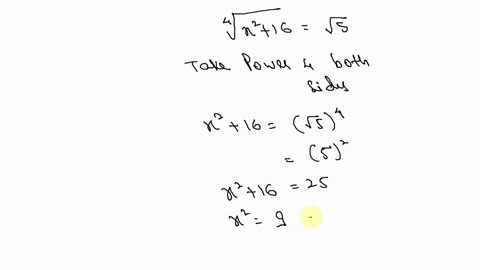 ∜(x²+16) = √5
Take Power 4 both
sides
x²+16 = (√5)⁴
= (5)²
x²+16 = 25
x² = 9